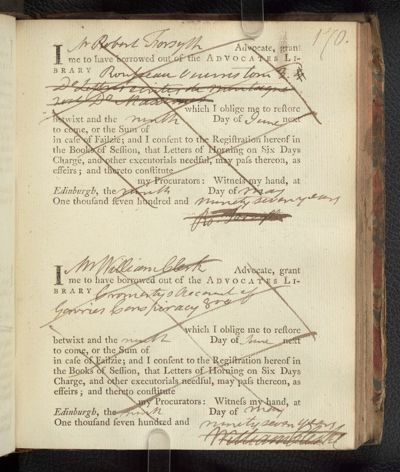 170.
I Mr Robert Forsyth Advocate, grant
me to have borrowed out of the ADVOCATES LI-
BRARY Rousseau Oeuvres tom
which I oblige me to restore
betwixt and the ninth Day of June next
to come, or the Sum of
in case of Failzie; and I consent to the Registration hereof in
the Books of Session, that Letters of Horning on Six Days
Charge, and other executorials needful, may pass thereon, as
effeirs; and thereto constitute
my Procurators: Witness my hand, at
Edinburgh, the ninth Day of may
One thousand seven hundred and ninety seven years
I Mr William Clerk Advocate, grant
me to have borrowed out of the ADVOCATES LI-
BRARY Cromerty's Account of
Gowries Conspiracy
which I oblige me to restore
betwixt and the ninth Day of June next
to come, or the Sum of
in case of Failzie; and I consent to the Registration hereof in
the Books of Session, that Letters of Horning on Six Days
Charge, and other executorials needful, may pass thereon, as
effeirs; and thereto constitute
my Procurators: Witness my hand, at
Edinburgh, the ninth Day of may
One thousand seven hundred and ninety seven years
William Clerk